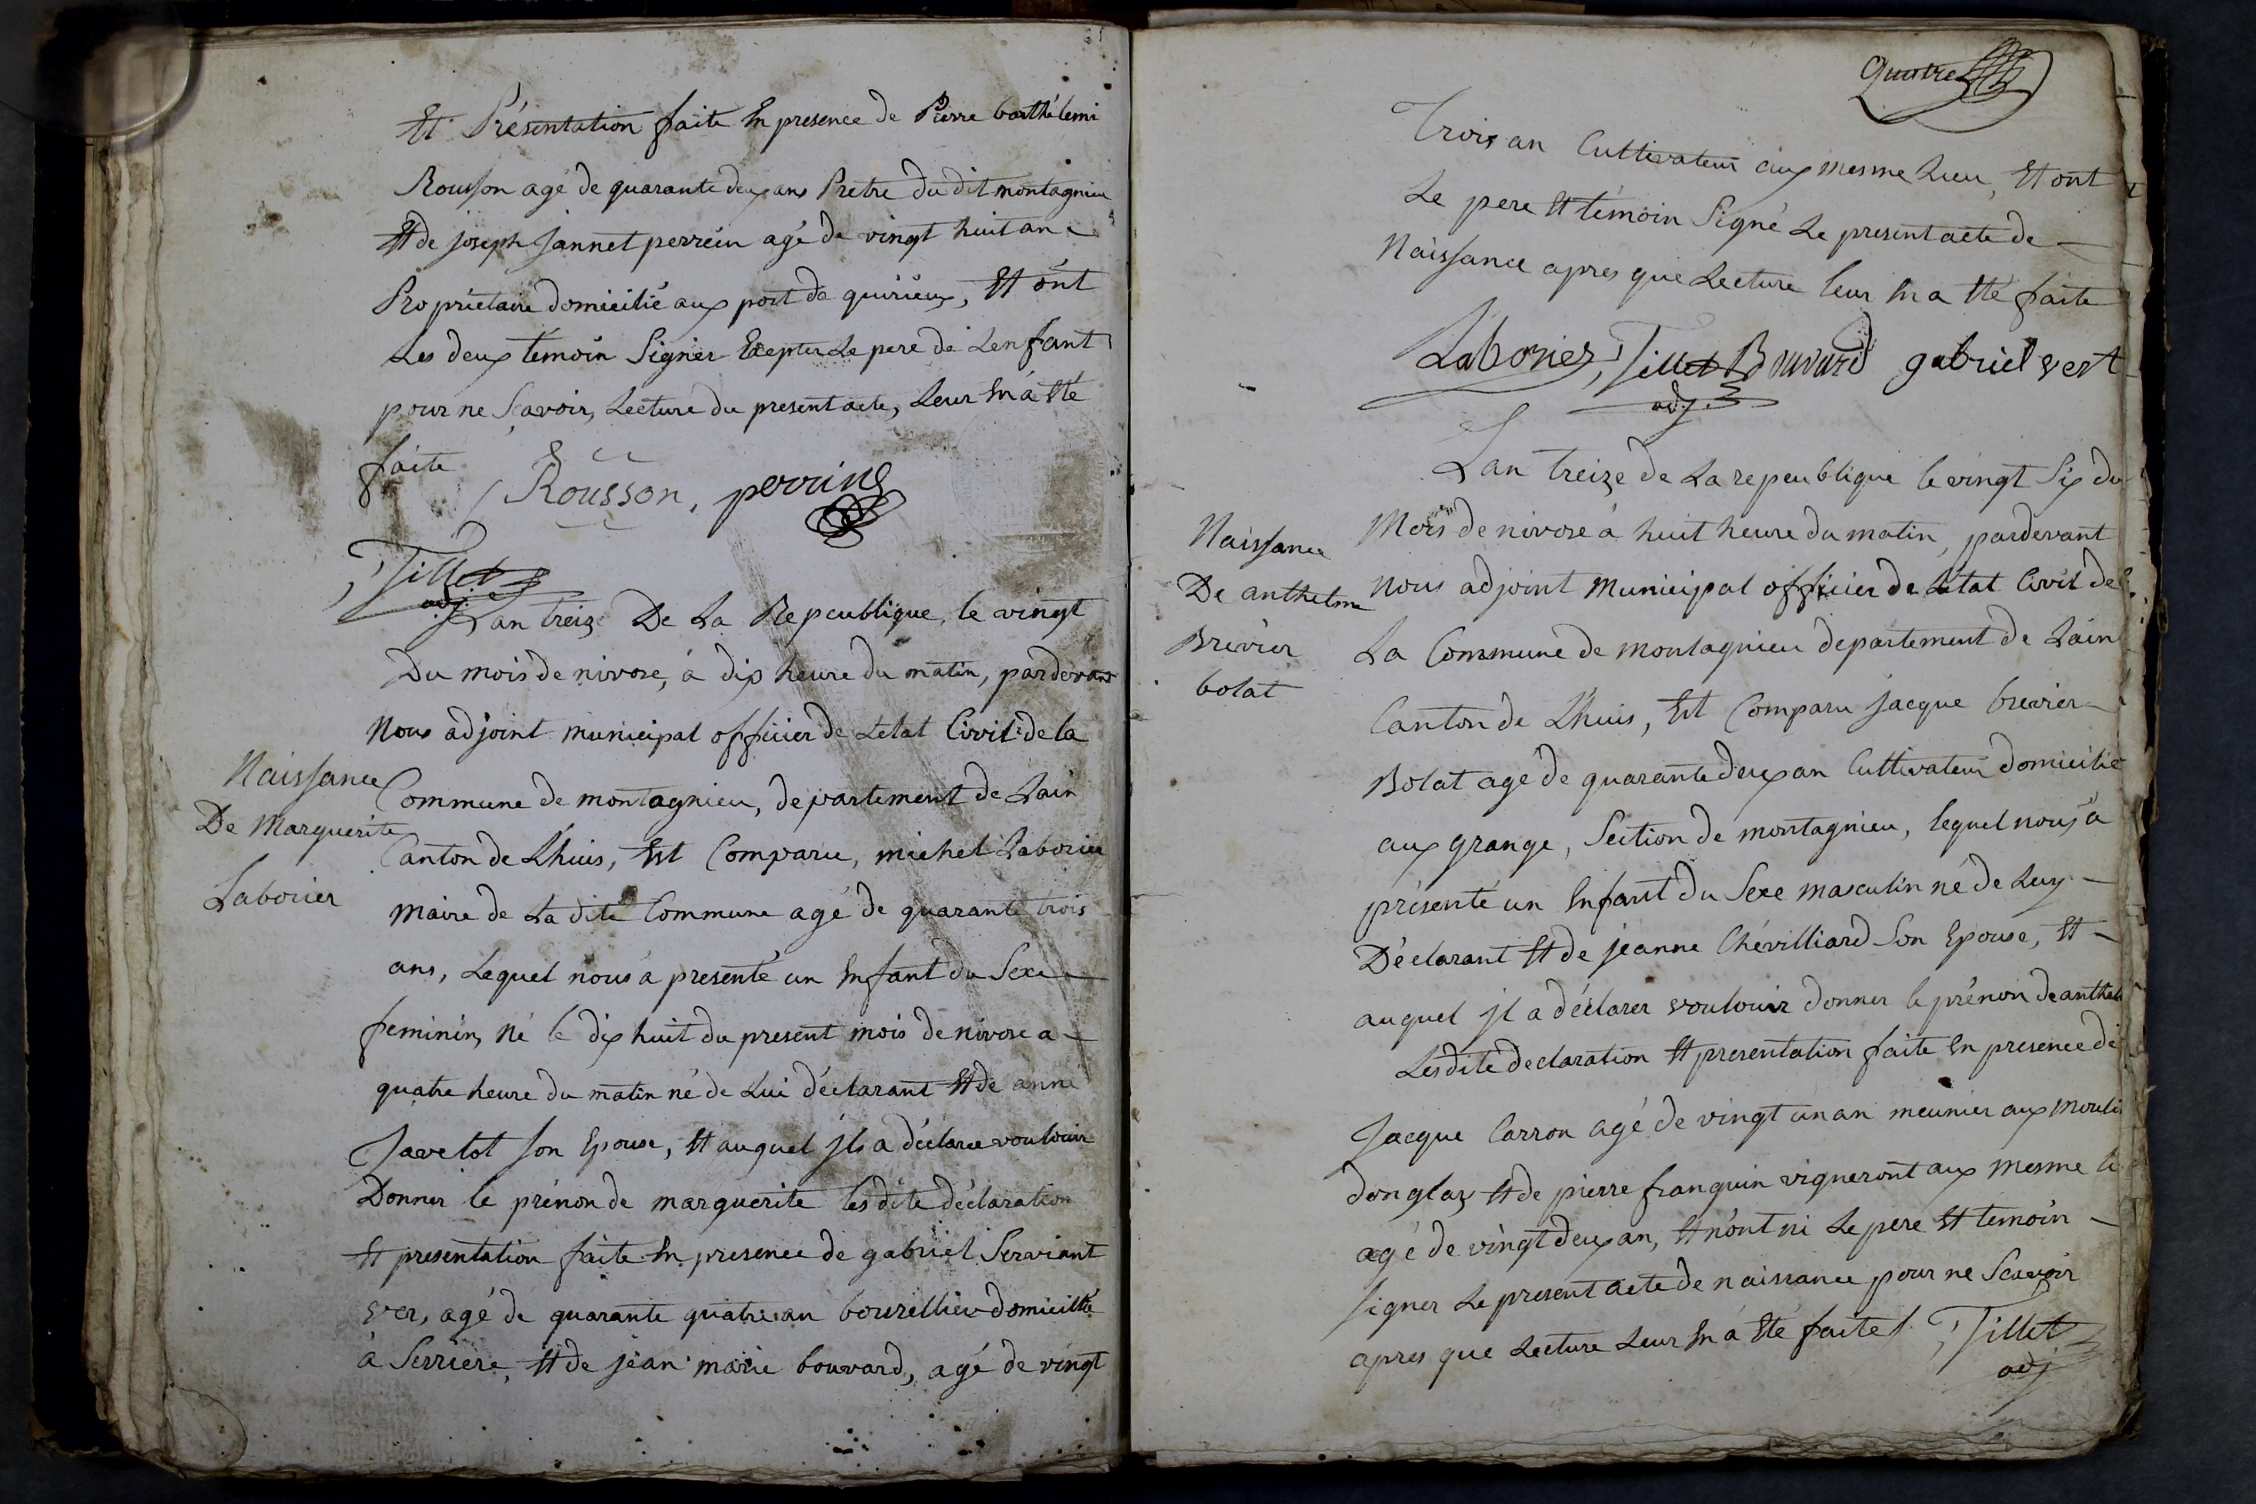 Et Présentation faite En presence de Pierre barthélemi
Rousson agé de quarante deux ans Pretre du dit montagnieu
Et de joseph Jannet perrein agé de vingt huit an
Proprietaire domicilié aux port de quirieux, Et ont
Les deux témoin Signer Excepter Le pere de L'enfant
pour ne Sçavoir, Lecture du present acte, Leur En a Eté
faite
Rousson, perrin
Tillet
adj.
Lan treize De La Repeublique, le vingt
Du mois de nivose, à dix heure du matin, pardevant
Nous adjoint municipal officier de Letat Civil de la
Naissance
De Marguerite
Laborier
Commune de montagnieu, departement de Lain
Canton de Lhuis, Est Comparu, michel Laborier
maire de La dite Commune agé de quarante trois
ans, Lequel nous a presenté un Enfant du Sexe
feminin, né le dix huit du present mois de nivose a
quatre heure du matin né de Lui déclarant Et de anne
Javelot son Epouse, Et auquel ils a déclaré voulouir
Donner le prénon de marguerite les dite déclaration
Et presentation faite En presence de gabriel Serviant
Ver, agé de quarante quatre an bourellier domicillié
à Serriere, Et de jean marie bouvard, agé de vingt
Quatre
Trois an Cultivateur aux mesme Lieu, Et ont
Le pere Et témoin Signé Le present acte de
Naissance apres que Lecture leur En a Eté faite
Laborier, Tillet Bouvard gabriel vert
adj.
Lan treize de La repeublique le vingt Six du
Naissance
De anthelme
Brevier
bolat
Mois de nivose à huit heure du matin, pardevant
Nous adjoint Municipal officier de Letat Civil de
La Commune de montagnieu departement de Lain
Canton de Lhuis, Est Comparu jacque brevier
Bolat agé de quarante deux an Cultivateur domicilié
aux grange, Section de montagnieu, lequel nous a
présenté un Enfant du Sexe masculin né de Luy
Déclarant Et de jeanne Chévilliard Son Epouse, Et
auquel jl a déclarer voulouir donner le prénon de anthel
Lesdite declaration Et presentation faite En presence de
Jacque Carron agé de vingt un an meunier aux Mouli
donglas Et de pierre franquin vigneront aux mesme li
agé de vingt deux an, Et n'ont ni Le pere Et témoin
signer Le present acte de naissance pour ne Scavoir
apres que Lecture Leur En a Eté faite Tillet
adj